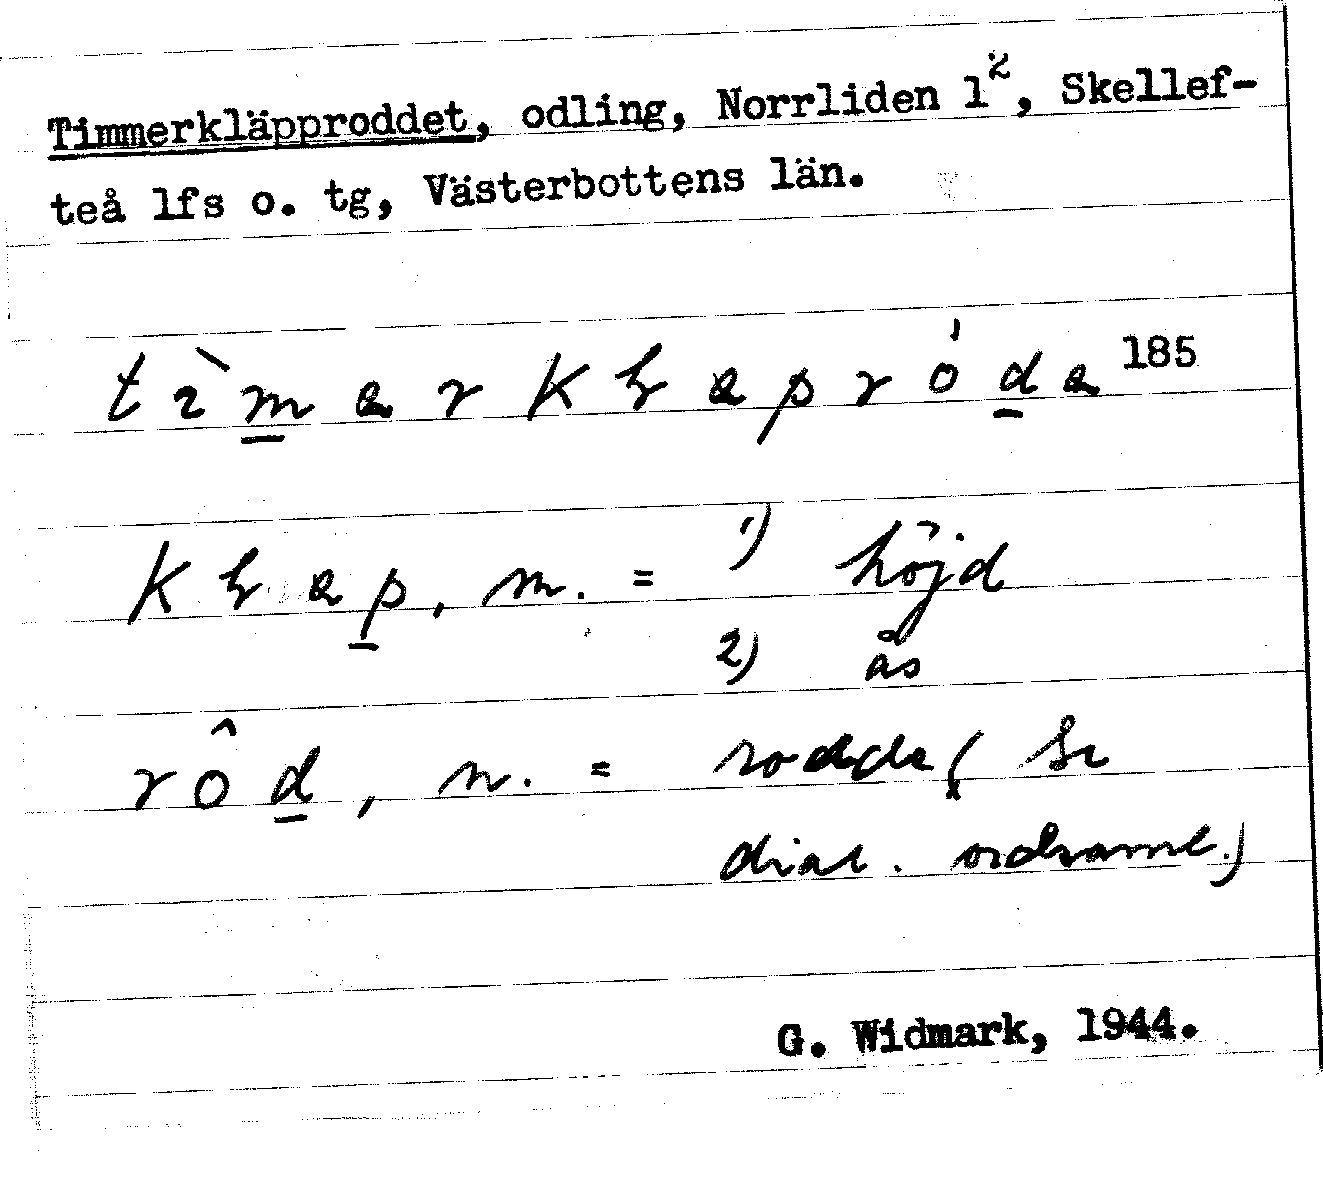 Timmerkläpproddet, odling, Norrliden 1², Skellef-
teå lfs o. tg, Västerbottens län.
185
m. = 1) höjd
2) ås
rôd, n. = rodde (se
dial. ordsaml.)
G. Widmark, 1944.